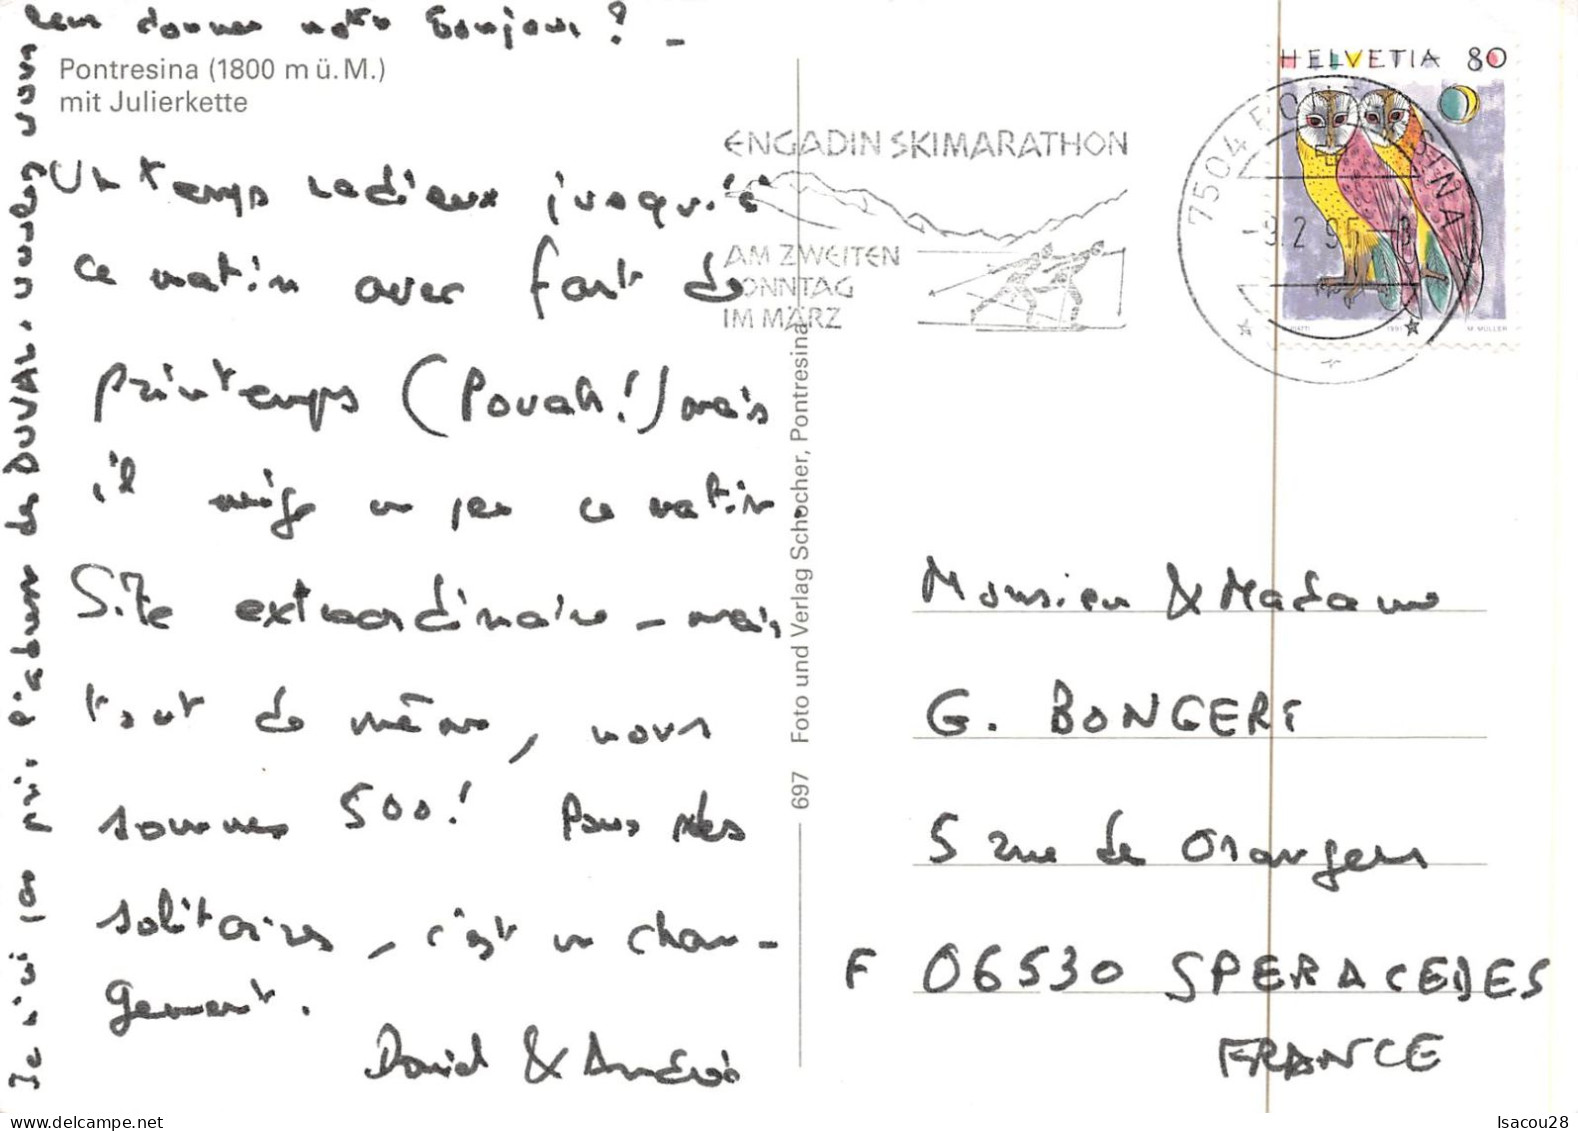 leur donner notre bonjour ? -
Pontresina (1800 m ü. M.)
mit Julierkette
Un temps radieux jusqu'à
ce matin avec foehn de
printemps (Pouah!) mais
il neige un peu ce matin.
Site extraordinaire - mais
tout de même, nous
sommes 500! Pour des
solitaires, c'est un chan-
gement.
David & Andrée
Je n'ai pas pris l'adresse des DUVAL. voulez vous
697 Foto und Verlag Schocher, Pontresina
ENGADIN SKIMARATHON
AM ZWEITEN
SONNTAG
IM MÄRZ
7504 PONTRESINA
-9.2.95-8
HELVETIA 80
1991 M. MÜLLER
Monsieur & Madame
G. BONGERT
5 rue de Orangers
F 06530 SPERACEDES
FRANCE
Isacou28